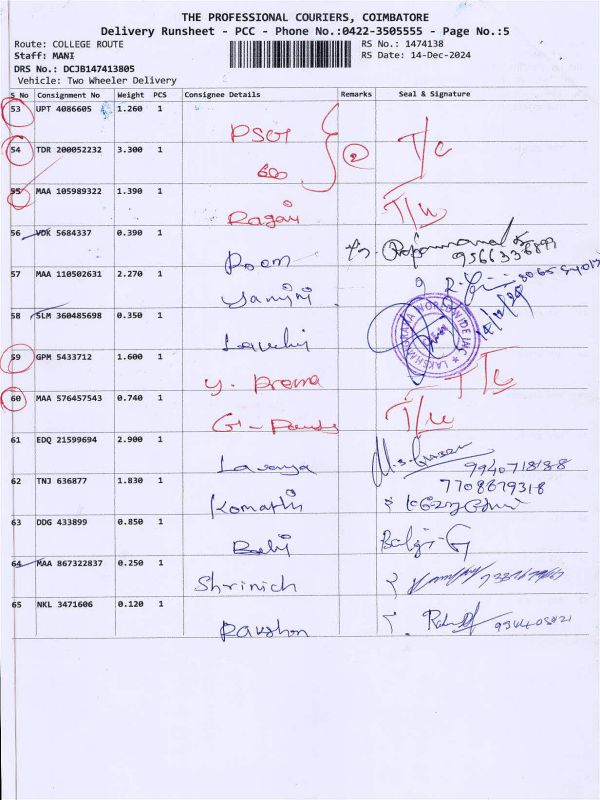 THE PROFESSIONAL COURIERS, COIMBATORE
Delivery Runsheet - PCC - Phone No.:0422-3505555 - Page No.:5
Route: COLLEGE ROUTE RS No.: 1474138
Staff: MANI RS Date: 14-Dec-2024
DRS No.: DCJB147413805
Vehicle: Two Wheeler Delivery
S No Consignment No Weight PCS Consignee Details Remarks Seal & Signature
53 UPT 4086605 1.260 1
PSG
54 TDR 200052232 3.300 1 2 T/c
55 MAA 105989322 1.390 1
Ragavi
56 VDK 5684337 0.390 1
Poem
57 MAA 110502631 2.270 1
Yamini
58 SLM 360485698 0.350 1
LAKSHMI MAYA WORLDWIDE INC.
59 GPM 5433712 1.600 1
Y. Prema T/c
60 MAA 576457543 0.740 1
61 EDQ 21599694 2.900 1
Lavanya 9940718188
62 TNJ 636877 1.830 1 7708879318
Komathi
63 DDG 433899 0.850 1
Balaji-G
64 MAA 867322837 0.250 1
Shrinich
65 NKL 3471606 0.120 1